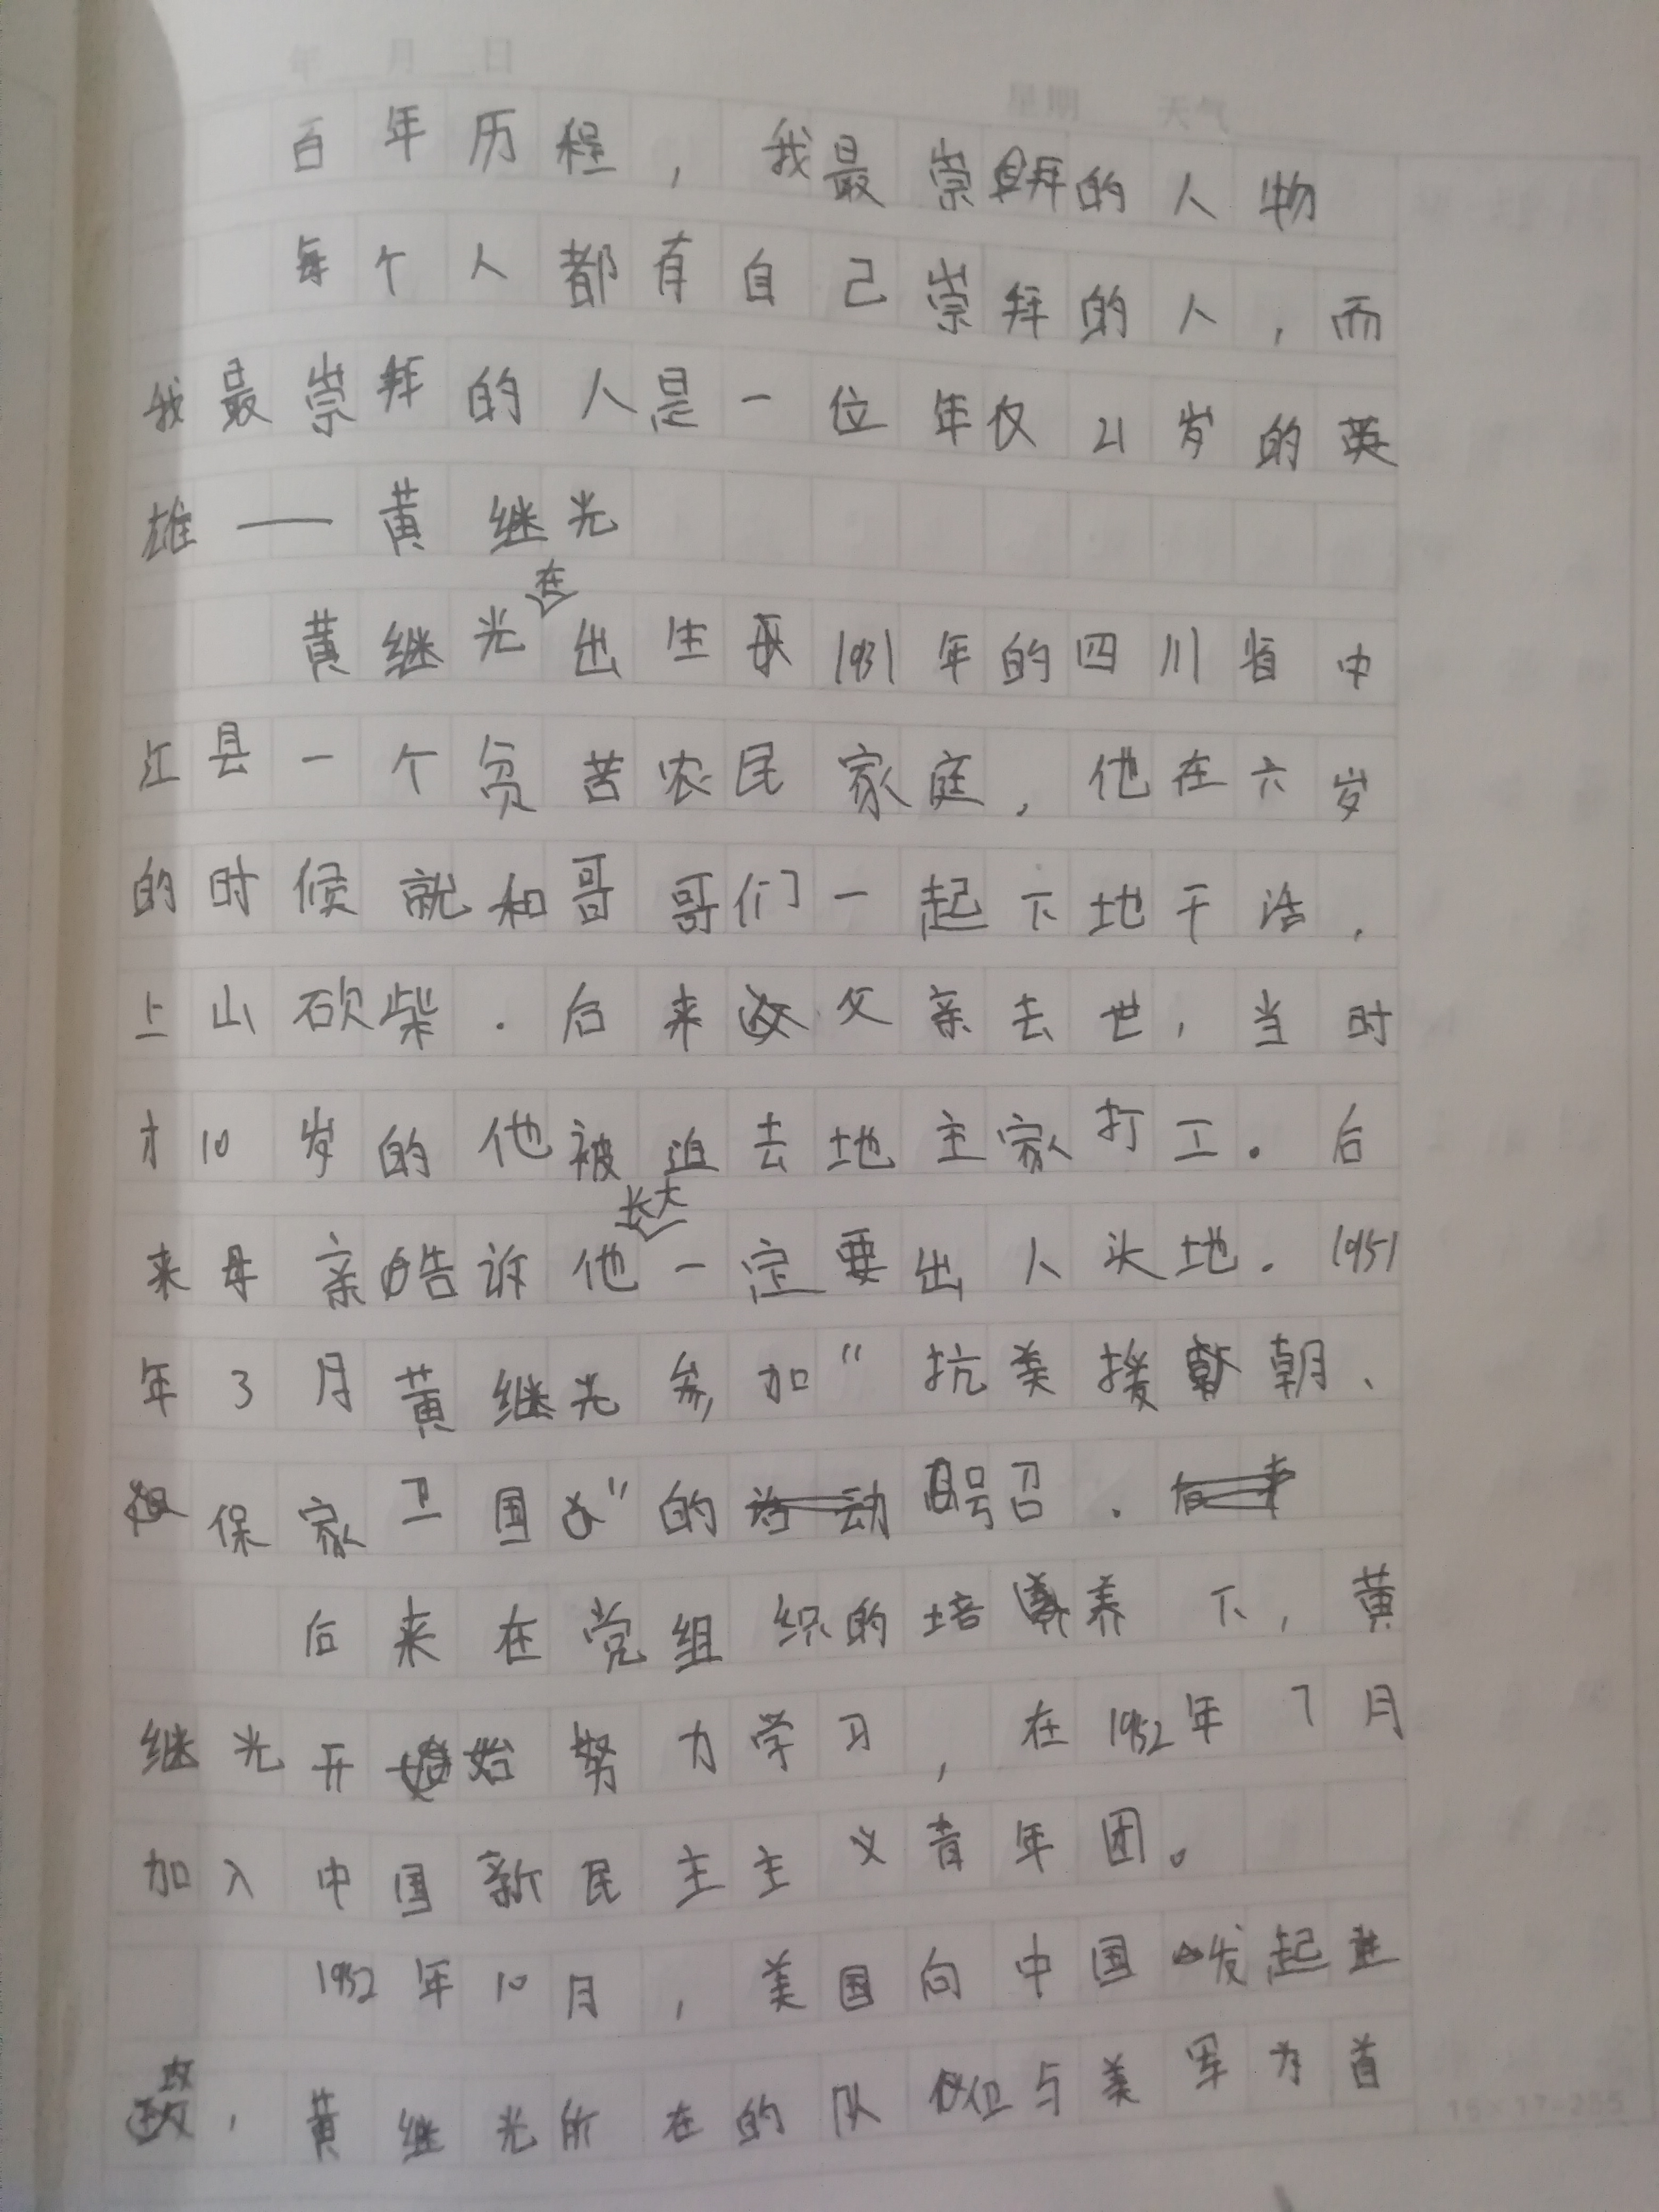 年 月 日
星期 天气
百年历程，我最崇拜的人物
每个人都有自己崇拜的人，而
我最崇拜的人是一位年仅21岁的英
雄——黄继光
黄继光在出生1931年的四川省中
江县一个贫苦农民家庭，他在六岁
的时候就和哥哥们一起下地干活，
上山砍柴.后来父亲去世，当时
才10岁的他被迫去地主家打工.后
来母亲告诉他长大一定要出人头地.1951
年3月黄继光参加“抗美援朝、
保家卫国”的号召.
后来在党组织的培养下，黄
继光开始努力学习，在1952年7月
加入中国新民主主义青年团。
1952年10月，美国向中国发起进
攻，黄继光所在的队伍与美军为首
15×17=255